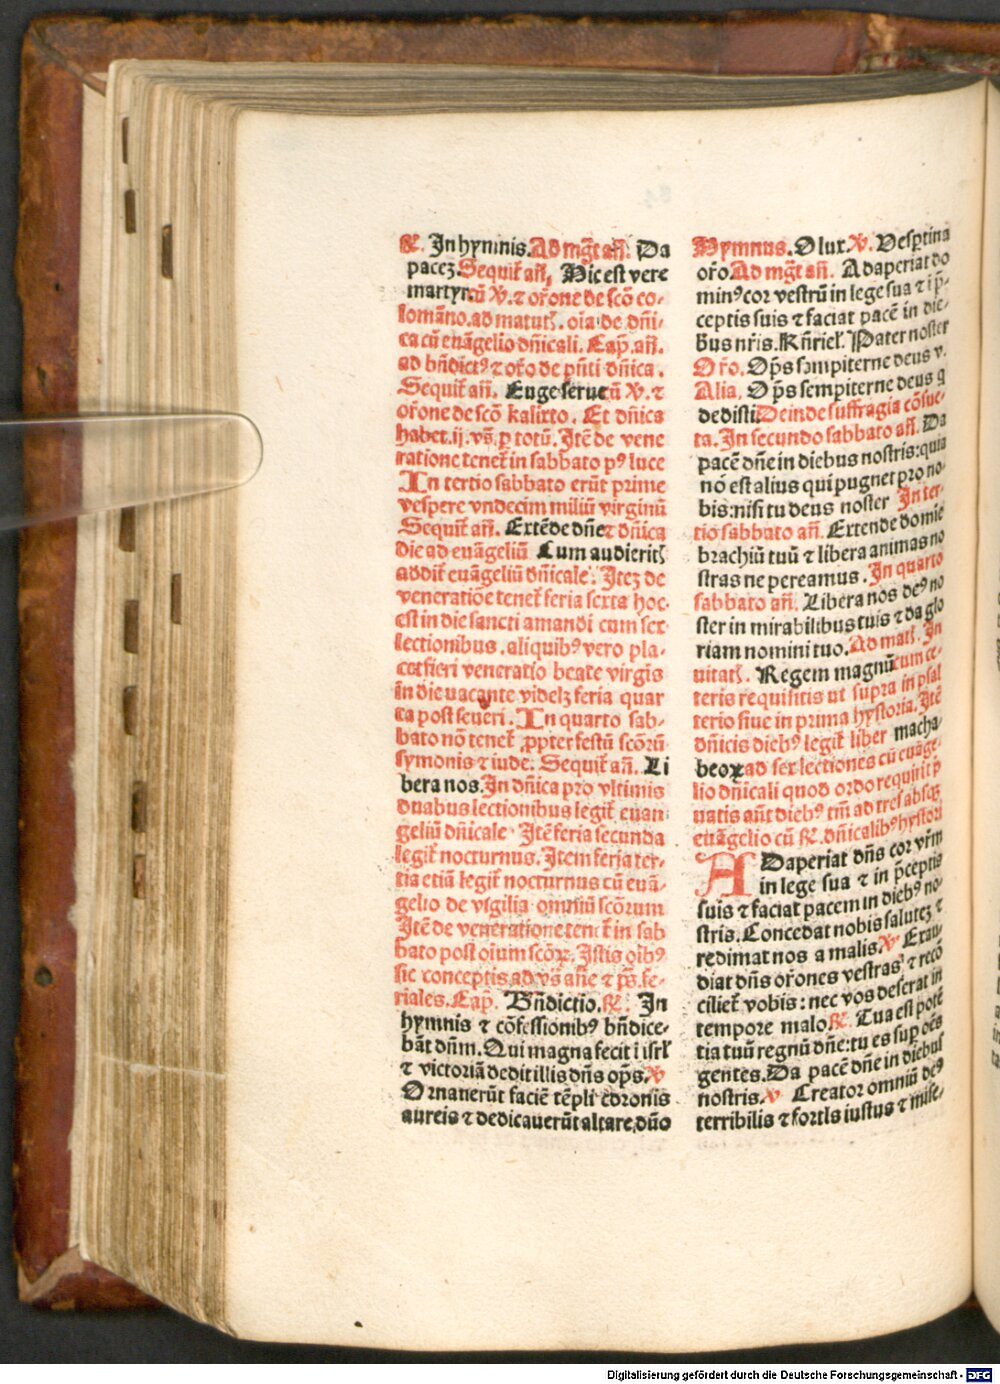 ℟. In hymnis. Ad mg̃t añ. Da
pacez. Sequit̃ añ, Hic est vere
martyr. cũ ℣. ⁊ or̃one de scõ co-
lomãno. ad matut̃. oĩa de dñi-
ca cũ euãgelio dñicali. Cap̃. añ.
ad bñdict⁹ ⁊ or̃o de pñti dñica.
Sequit̃ añ. Euge serue cũ ℣. ⁊
or̃one de scõ kalixto. Et dñica
habet .ij. vs̃. ꝑ totũ. Itẽ de vene
ratione tenet̃ in sabbato p⁹ luce
In tertio sabbato erũt prime
vespere vndecim miliũ virginũ
Sequit̃ añ. Extẽde dñe ⁊ dñica
die ad euãgeliũ Cum audieritꝭ
addit̃ euãgeliũ dñicale. Itez de
veneratiõe tenet̃ feria sexta hoc
est in die sancti amandi cum sex
lectionibus. aliquib⁹ vero pla-
cet fieri veneratio beate virgĩs
in die vacante videlꝫ feria quar
ta post seueri. In quarto sab-
bato nõ tenet̃ ꝓpter festũ scõrũ
symonis ⁊ iude. Sequit̃ añ. Li
bera nos. In dñica pro vltimis
duabus lectionibus legit̃ euan
geliũ dñicale. Itẽ feria secunda
legit̃ nocturnus. Item feria ter-
tia etiã legit̃ nocturnus cũ euã-
gelio de vigilia omniũ scõrum
Itẽ de veneratione tenet̃ in sab
bato post oĩum scõꝝ. Istis oĩb⁹
sic conceptis ad vs̃ añe ⁊ ps̃. fe-
riales. Cap̃. Bñdictio. ℟. In
hymnis ⁊ cõfessionib⁹ bñdice-
bãt dñm. Qui magna fecit ĩ isrl̃
⁊ victoriã dedit illis dñs op̃s. ℣
Ornauerũt faciẽ tẽpli coronis
aureis ⁊ dedicauerũt altare dño
Hymnus. O lux. ℣. Vesꝑtina
or̃o. Ad mg̃t añ. Adaperiat do
min⁹ cor vestrũ in lege sua ⁊ ĩ p̃-
ceptis suis ⁊ faciat pacẽ in die-
bus nr̃is. Kyriel̃. Pater noster
Or̃o. Op̃s sempiterne deus v.
Alia, Op̃s sempiterne deus q
dedisti. Deinde suffragia cõsue-
ta. In secundo sabbato añ. Da
pacẽ dñe in diebus nostris: quia
nõ est alius qui pugnet pro no-
bis: nisi tu deus noster In ter-
tio sabbato añ. Extende domie
brachiũ tuũ ⁊ libera animas no
stras ne pereamus. In quarto
sabbato añ. Libera nos de⁹ no
ster in mirabilibus tuis ⁊ da glo
riam nomini tuo. Ad mat̃. In
uitat̃. Regem magnũ cum ce-
teris requisitis ut supra in psal
terio siue in prima hystoria. Itẽ
dñicis dieb⁹ legit̃ liber macha-
beoꝝ ad sex lectiones cũ euãge-
lio dñicali quod ordo requirit p̃
uatis aũt dieb⁹ tm̃ ad tres absqꝫ
euãgelio cũ ℟. dñicalib⁹ hystori
Adaperiat dñs cor vr̃m
in lege sua ⁊ in p̃ceptis
suis ⁊ faciat pacem in dieb⁹ no-
stris. Concedat nobis salutez ⁊
redimat nos a malis. ℣ Exau-
diat dñs or̃ones vestras ⁊ recõ
ciliet̃ vobis: nec vos deserat in
tempore malo ℟. Tua est potẽ
tia tuũ regnũ dñe: tu es suꝑ oẽs
gentes. Da pacẽ dñe in diebus
nostris. ℣ Creator omniũ de⁹
terribilis ⁊ fortis iustus ⁊ mise-
Digitalisierung gefördert durch die Deutsche Forschungsgemeinschaft - DFG